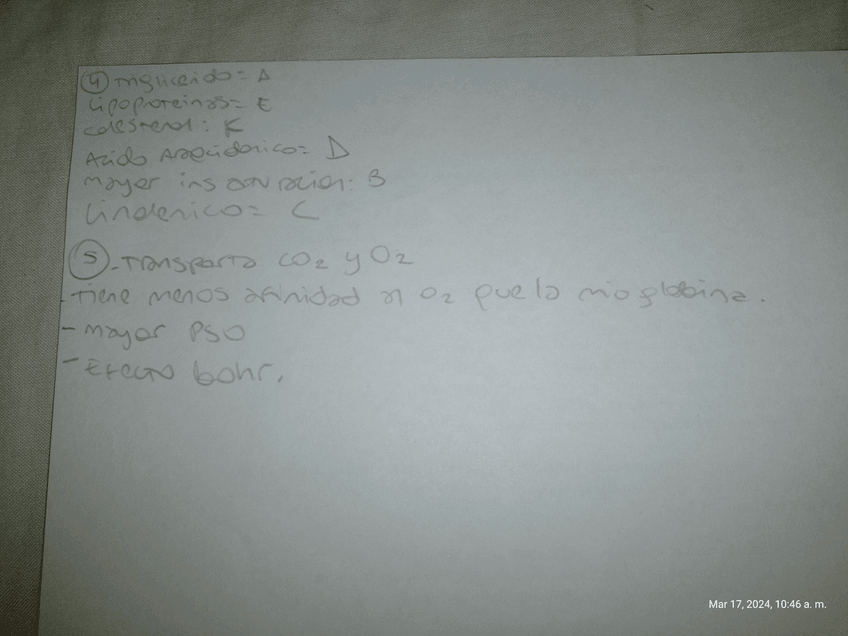 4 trigliceido = A
Lipoproteinas = E
colesterol: K
Acido Araquidonico = D
mayor insaturacion: B
Linolenico = C
5 - Transporta CO2 y O2
- Tiene menos afinidad al O2 que la mioglobina.
- Mayor P50
- Efecto bohr.
Mar 17, 2024, 10:46 a. m.